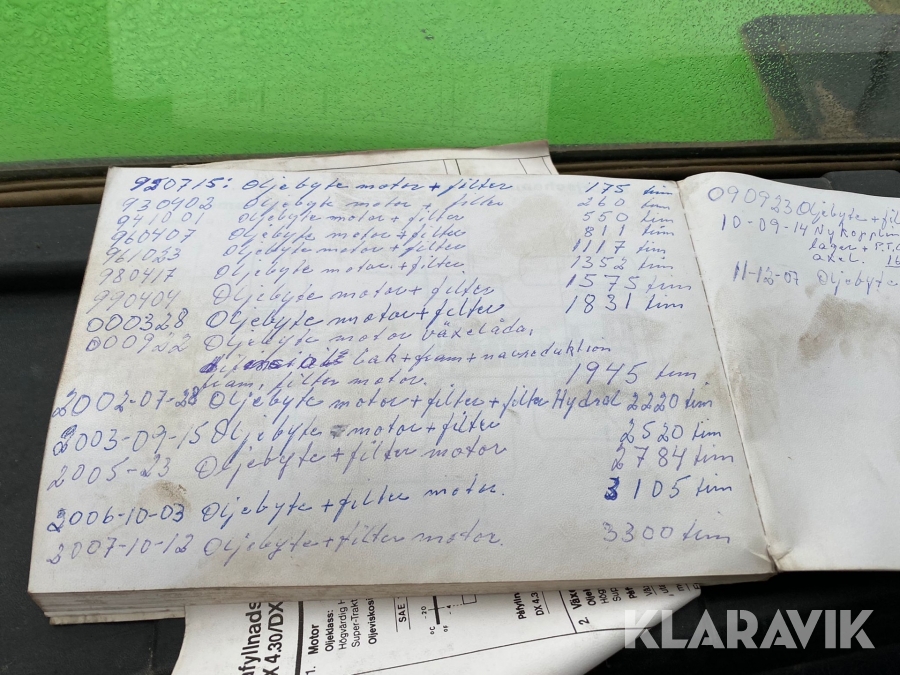 920715: Oljebyte motor + filter 175 tim
930402 Oljebyte motor + filter 260 tim
941001 Oljebyte motor + filter 550 tim
960407 Oljebyte motor + filter 811 tim
961023 Oljebyte motor + filter 1117 tim
980417 Oljebyte motor + filter 1352 tim
990404 Oljebyte motor + filter 1575 tim
000328 Oljebyte motor + filter 1831 tim
000922 Oljebyte motor växelåda,
bak + fram + navreduktion
fram, filter motor. 1945 tim
2002-07-28 Oljebyte motor + filter + filter Hydrol 2220 tim
2003-09-15 Oljebyte motor + filter 2520 tim
2005-23 Oljebyte + filter motor 2784 tim
2006-10-03 Oljebyte + filter motor. 3105 tim
2007-10-12 Oljebyte + filter motor. 3300 tim
090923 Oljebyte + fil
10-09-14 Ny Kopplin
lager + P.T.O
axel. 16
11-12-07 Oljebyte
afyllnads
X 4.30/DX
1. Motor
Oljeklass:
Högvärdig H
Super-Trakt
Oljeviskosi
SAE
-20
-4
°C
°F
Påfylln
DX 4.3
2 Växe
Oljek
Sup
KLARAVIK